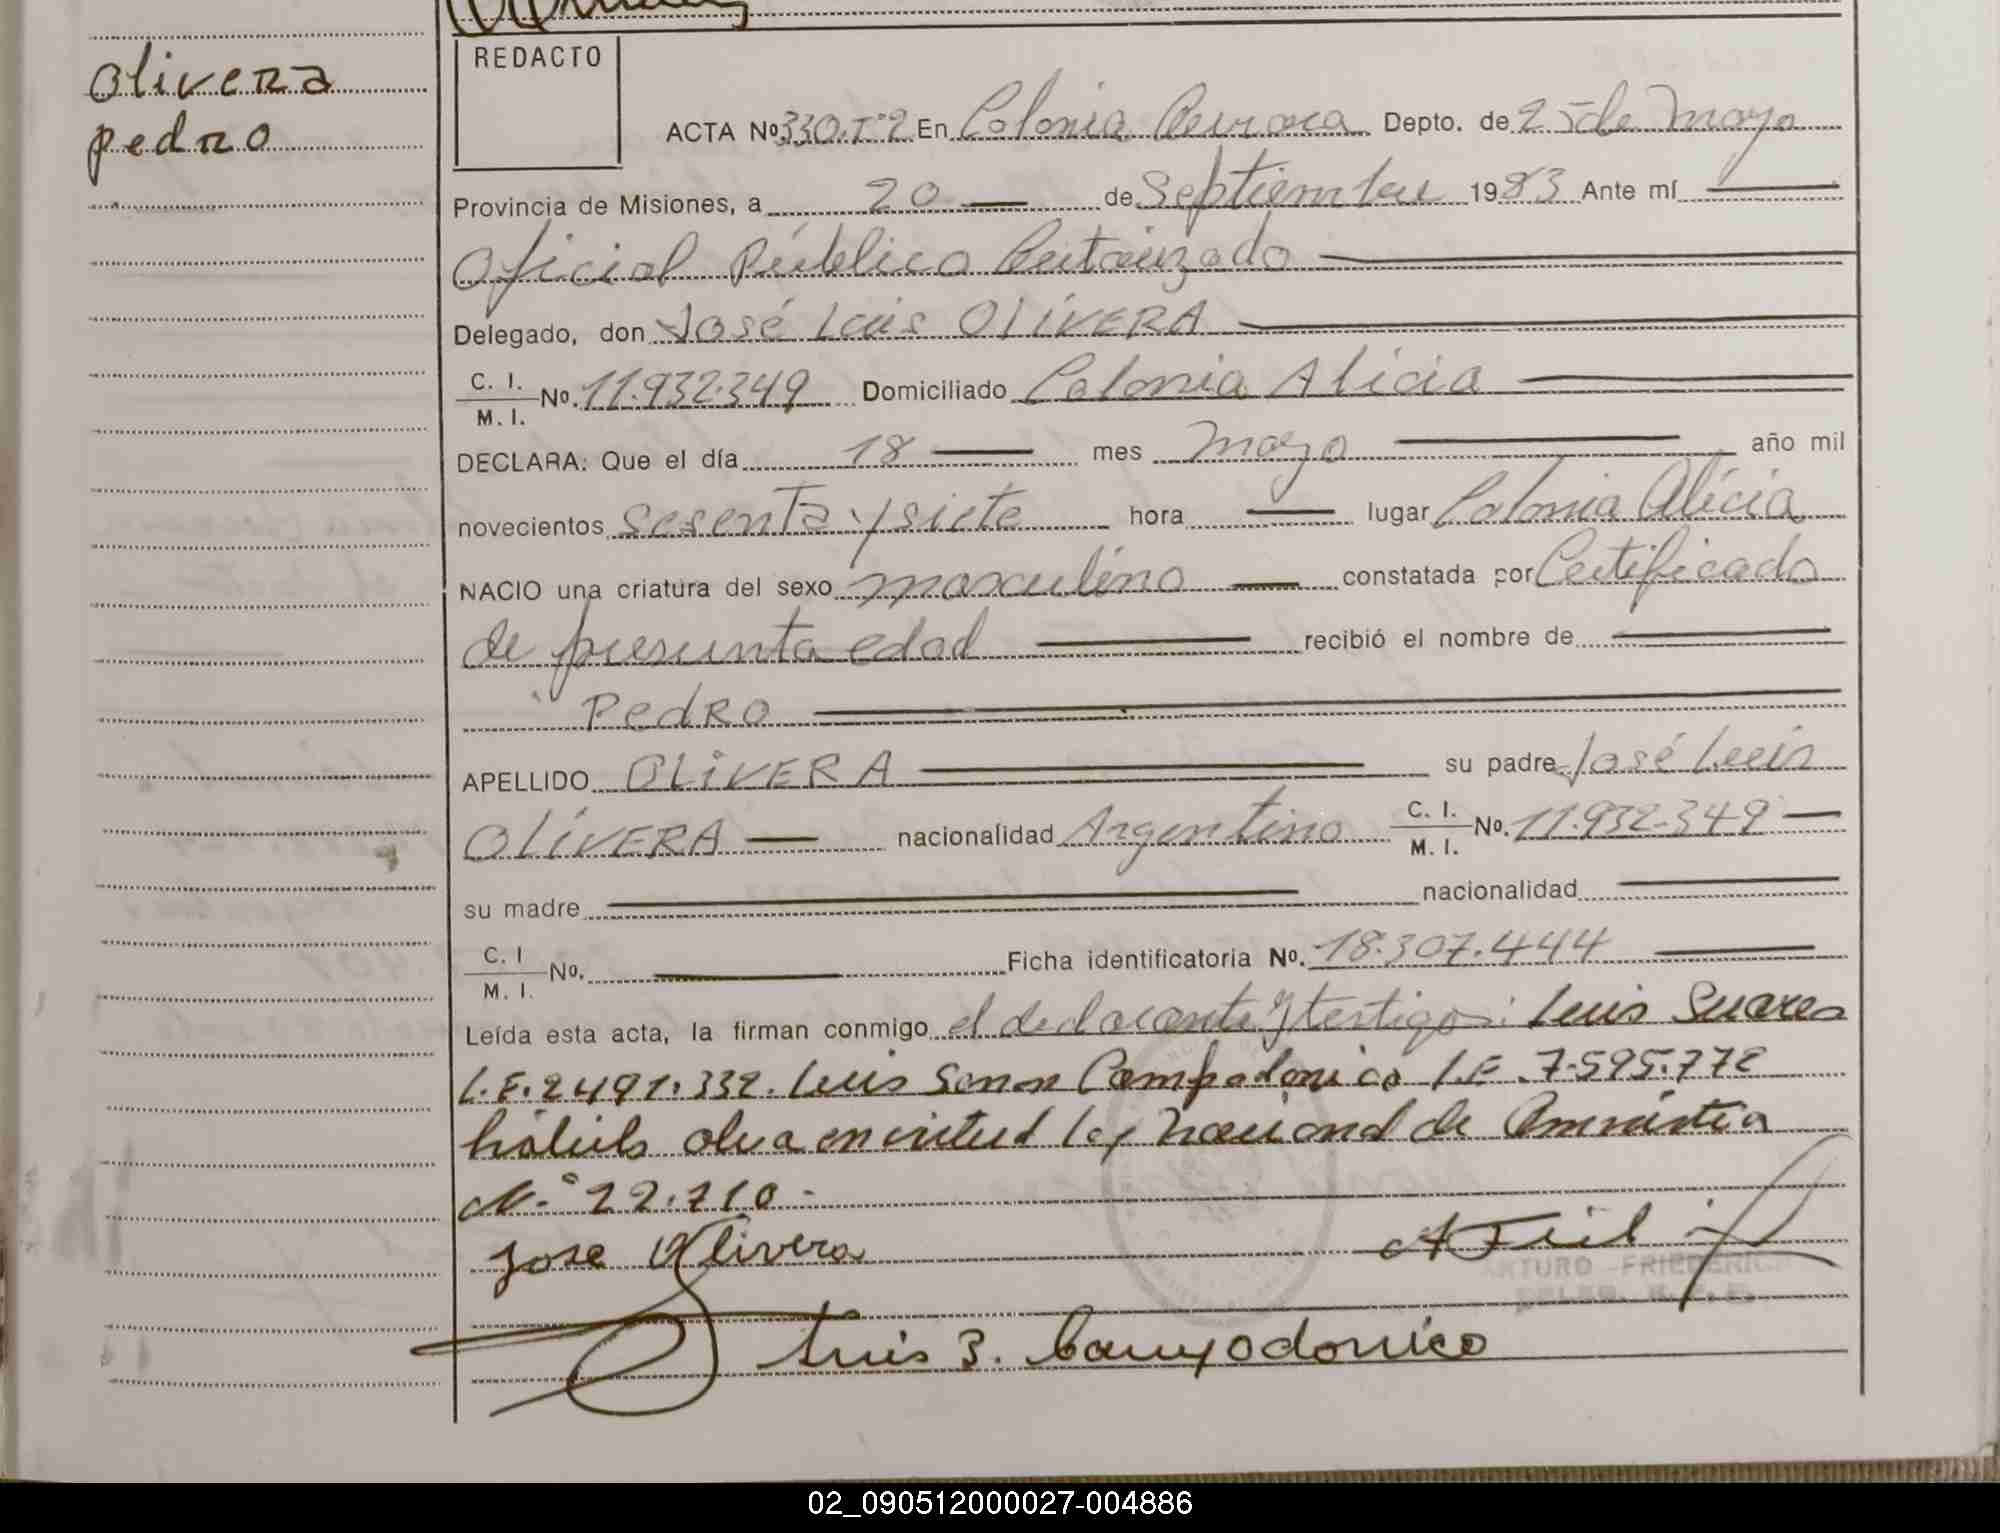 Olivera
Pedro
REDACTO
ACTA Nº 330.Tº2 En Colonia Aurora Depto. de 25 de Mayo
Provincia de Misiones, a 20 — de Septiembre 1983 Ante mí —
Oficial Público Autorizado —
Delegado, don José Luis OLIVERA —
C. I.
M. I. Nº. 11.932.349 Domiciliado Colonia Alicia —
DECLARA: Que el día 18 — mes Mayo — año mil
novecientos sesenta y siete hora — lugar Colonia Alicia
NACIO una criatura del sexo masculino — constatada por Certificado
de presunta edad — recibió el nombre de —
Pedro —
APELLIDO OLIVERA — su padre José Luis
OLIVERA — nacionalidad Argentino C. I.
M. I. Nº. 11.932.349 —
su madre — nacionalidad —
C. I
M. I. Nº. — Ficha identificatoria Nº. 18.307.444 —
Leída esta acta, la firman conmigo el declarante y testigos: Luis Suares
L.E. 2491.332. Luis Campodonico L.E. 7.595.772
hábiles en virtud ley Nacional de Amnistia
N.º 22.710.-
Jose Olivera
ARTURO FRIEDERICH
Luis B. Campodonico
02_090512000027-004886